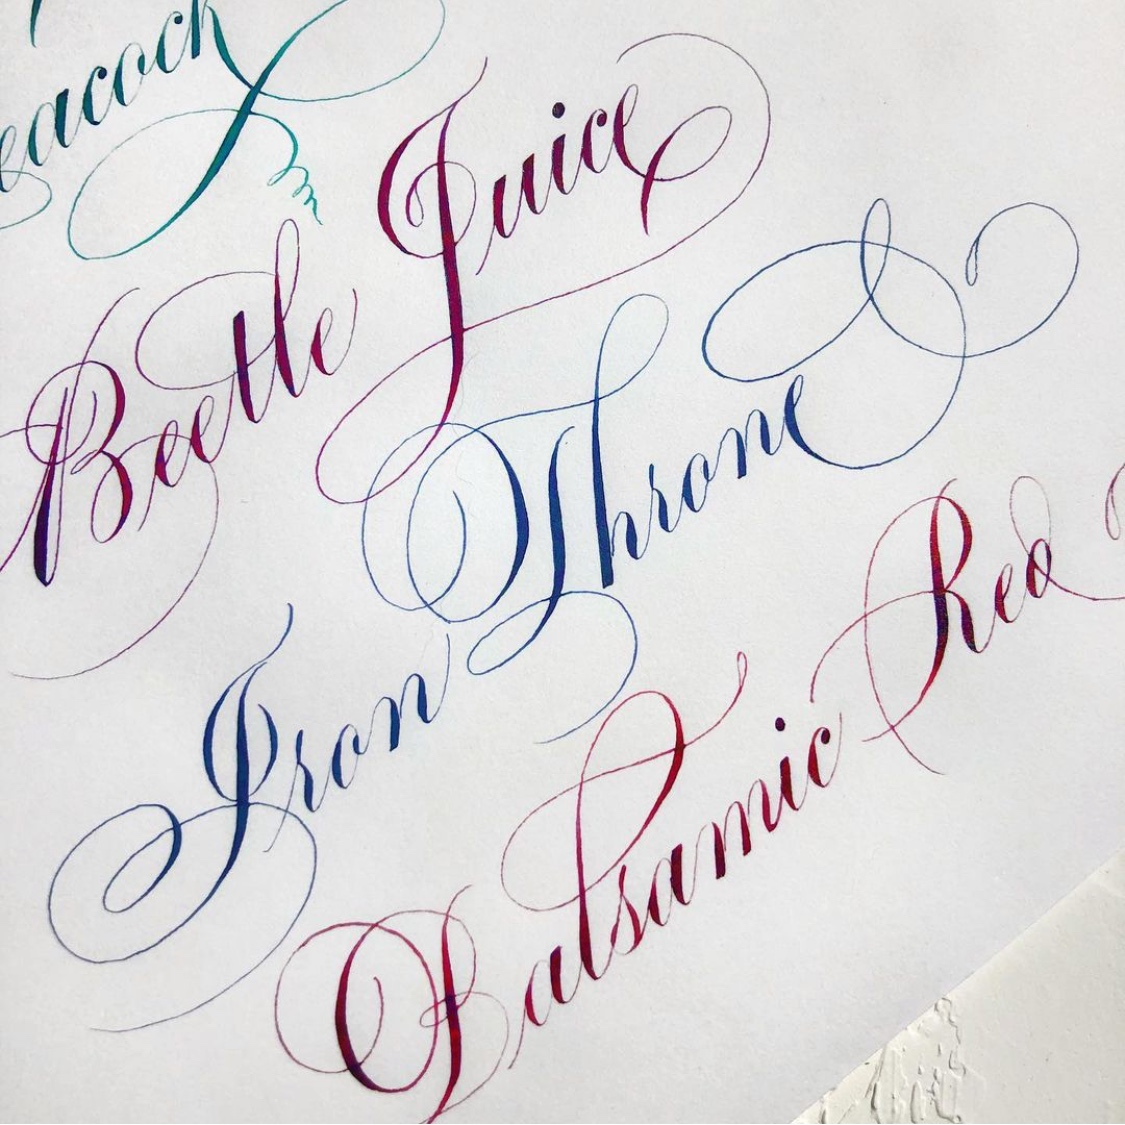 eacock
Beetle Juice
Iron Throne
Balsamic Red